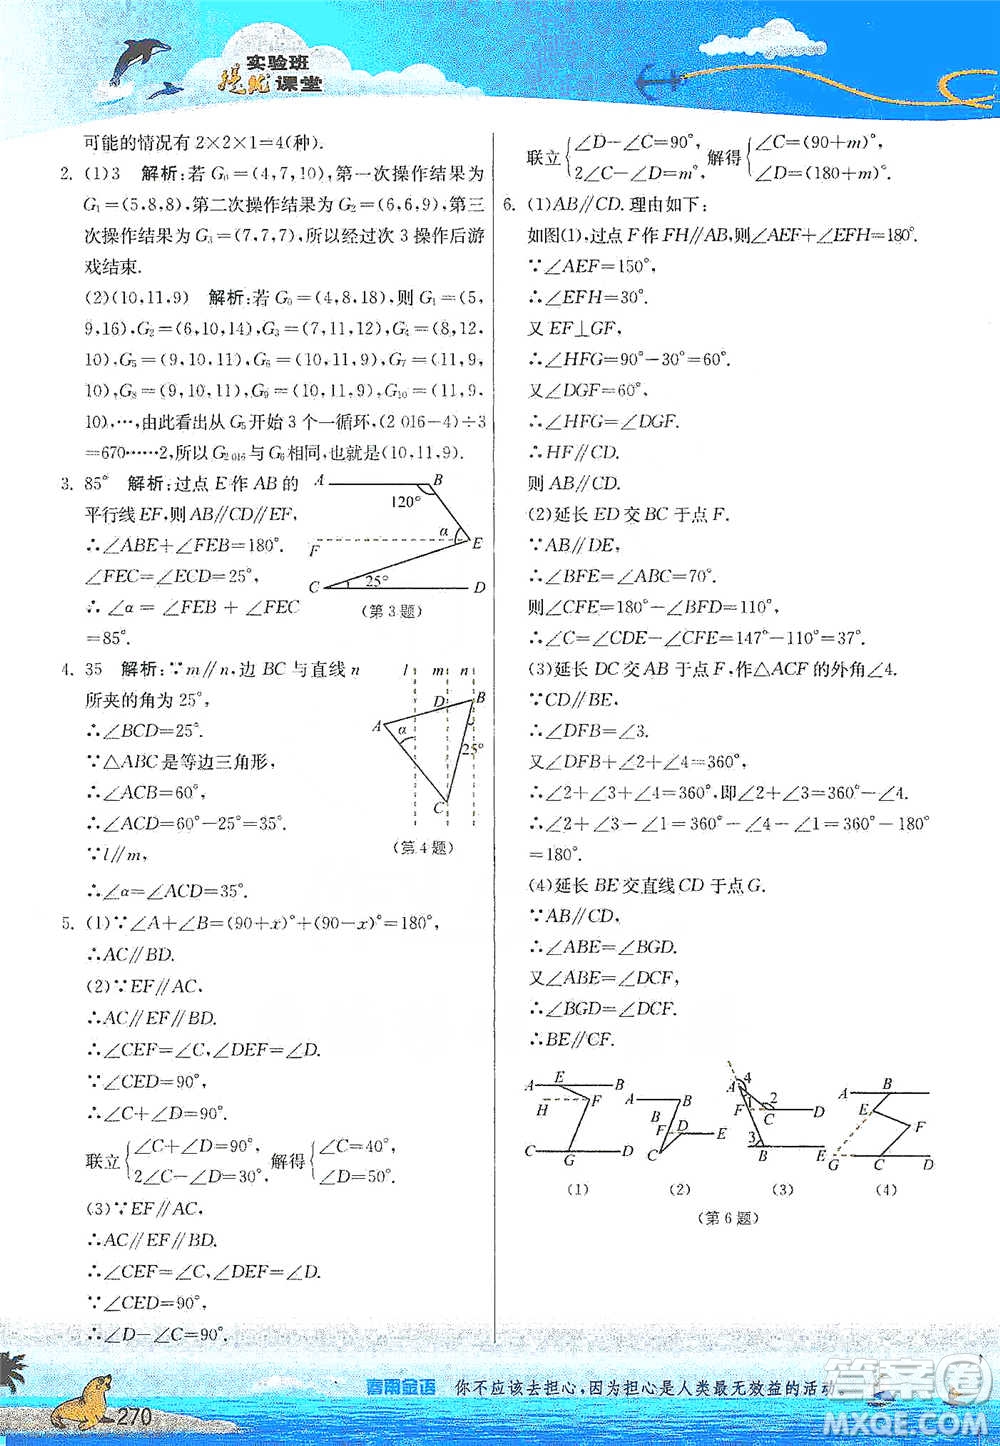 实验班
提优课堂
可能的情况有 2×2×1=4(种).
2. (1)3 解析:若 G₀=(4,7,10),第一次操作结果为
G₁=(5,8,8),第二次操作结果为 G₂=(6,6,9),第三
次操作结果为 G₃=(7,7,7),所以经过次 3 操作后游
戏结束.
(2)(10,11,9) 解析:若 G₀=(4,8,18),则 G₁=(5,
9,16),G₂=(6,10,14),G₃=(7,11,12),G₄=(8,12,
10),G₅=(9,10,11),G₆=(10,11,9),G₇=(11,9,
10),G₈=(9,10,11),G₉=(10,11,9),G₁₀=(11,9,
10),…,由此看出从 G₅开始 3 个一循环,(2 016-4)÷3
=670……2,所以 G₂ ₀₁₆与 G₆相同,也就是(10,11,9).
3. 85° 解析:过点 E 作 AB 的
平行线 EF,则 AB∥CD∥EF,
∴∠ABE+∠FEB=180°.
∠FEC=∠ECD=25°,
∴ ∠α = ∠FEB + ∠FEC
=85°.
A B 120° α F E C 25° D
(第 3 题)
4. 35 解析:∵m∥n,边 BC 与直线 n
所夹的角为 25°,
∴∠BCD=25°.
∵△ABC 是等边三角形,
∴∠ACB=60°,
∴∠ACD=60°-25°=35°.
∵l∥m,
∴∠α=∠ACD=35°.
l m n D B A α 25° C
(第 4 题)
5. (1)∵∠A+∠B=(90+x)°+(90-x)°=180°,
∴AC∥BD.
(2)∵EF∥AC,
∴AC∥EF∥BD.
∴∠CEF=∠C,∠DEF=∠D.
∵∠CED=90°,
∴∠C+∠D=90°.
联立{∠C+∠D=90°, 2∠C-∠D=30°, 解得{∠C=40°, ∠D=50°.
(3)∵EF∥AC,
∴AC∥EF∥BD.
∴∠CEF=∠C,∠DEF=∠D.
∵∠CED=90°,
∴∠D-∠C=90°.
联立{∠D-∠C=90°, 2∠C-∠D=m°, 解得{∠C=(90+m)°, ∠D=(180+m)°.
6. (1)AB∥CD.理由如下:
如图(1),过点 F 作 FH∥AB,则∠AEF+∠EFH=180°.
∵∠AEF=150°,
∴∠EFH=30°.
又 EF⊥GF,
∴∠HFG=90°-30°=60°.
又∠DGF=60°,
∴∠HFG=∠DGF.
∴HF∥CD.
则 AB∥CD.
(2)延长 ED 交 BC 于点 F.
∵AB∥DE,
∴∠BFE=∠ABC=70°.
则∠CFE=180°-∠BFD=110°,
∴∠C=∠CDE-∠CFE=147°-110°=37°.
(3)延长 DC 交 AB 于点 F,作△ACF 的外角∠4.
∵CD∥BE,
∴∠DFB=∠3.
又∠DFB+∠2+∠4=360°,
∴∠2+∠3+∠4=360°,即∠2+∠3=360°-∠4.
∴∠2+∠3-∠1=360°-∠4-∠1=360°-180°
=180°.
(4)延长 BE 交直线 CD 于点 G.
∵AB∥CD,
∴∠ABE=∠BGD.
又∠ABE=∠DCF,
∴∠BGD=∠DCF.
∴BE∥CF.
A E B H F C G D
A B B F D E C
A 4 F 1 2 C D 3 B E
A B E F G C D
(1) (2) (3) (4)
(第 6 题)
270
春雨金语 你不应该去担心,因为担心是人类最无效益的活动
答案卷
MXQE.COM